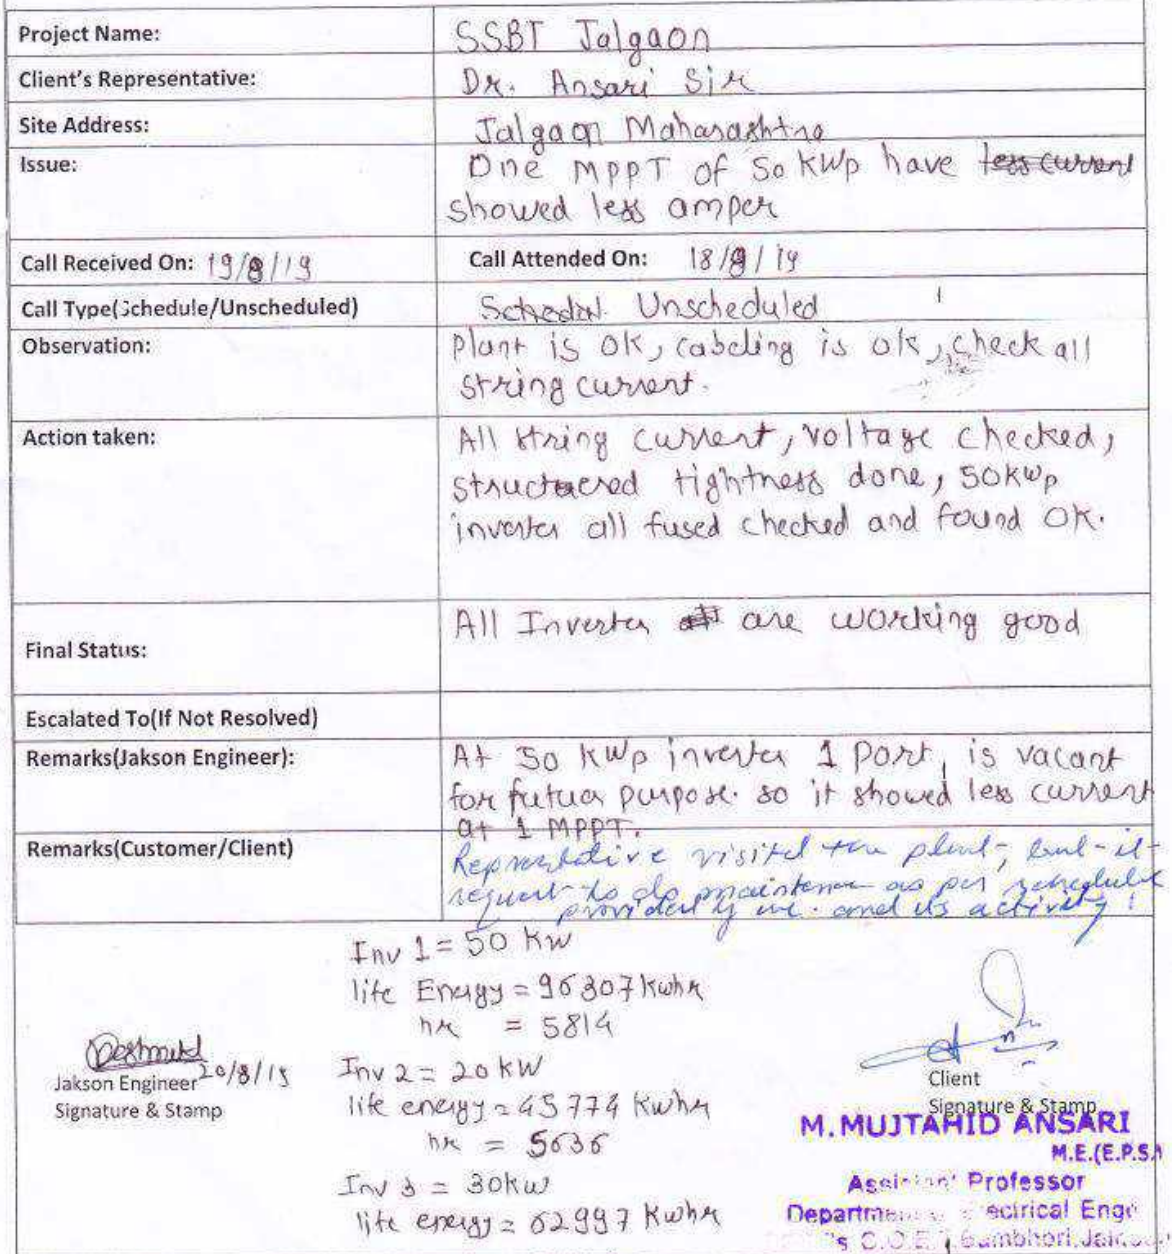 Project Name: SSBT Jalgaon
Client's Representative: Dr. Ansari Sir
Site Address: Jalgaon Maharashtra
Issue: One MPPT of 50 KWp have less current
showed less amper
Call Received On: 19/8/19 Call Attended On: 18/8/19
Call Type(Schedule/Unscheduled) Schedul. Unscheduled
Observation: Plant is ok, cabeling is ok, check all
string current.
Action taken: All string current, voltage checked,
structured tightness done, 50kwp
inverter all fused checked and found OK.
Final Status: All Inverter are working good
Escalated To(If Not Resolved)
Remarks(Jakson Engineer): At 50 KWp inverter 1 port, is vacant
for futuer purpose. so it showed less current
at 1 MPPT.
Remarks(Customer/Client) Representative visited the plant, but it
request to do maintenance as per schedule
provided by we. and its activity!
Inv 1 = 50 KW
life Energy = 96307 Kwhr
hr = 5814
Inv 2 = 20 KW
life energy = 45774 Kwhr
hr = 5636
Inv 3 = 30kw
life energy = 62997 Kwhr
Deshmukh
20/8/19
Jakson Engineer
Signature & Stamp
Client
Signature & Stamp
M.MUJTAHID ANSARI
M.E.(E.P.S.)
Assistant Professor
Department Electrical Engg
C.O.E.T Bambhori